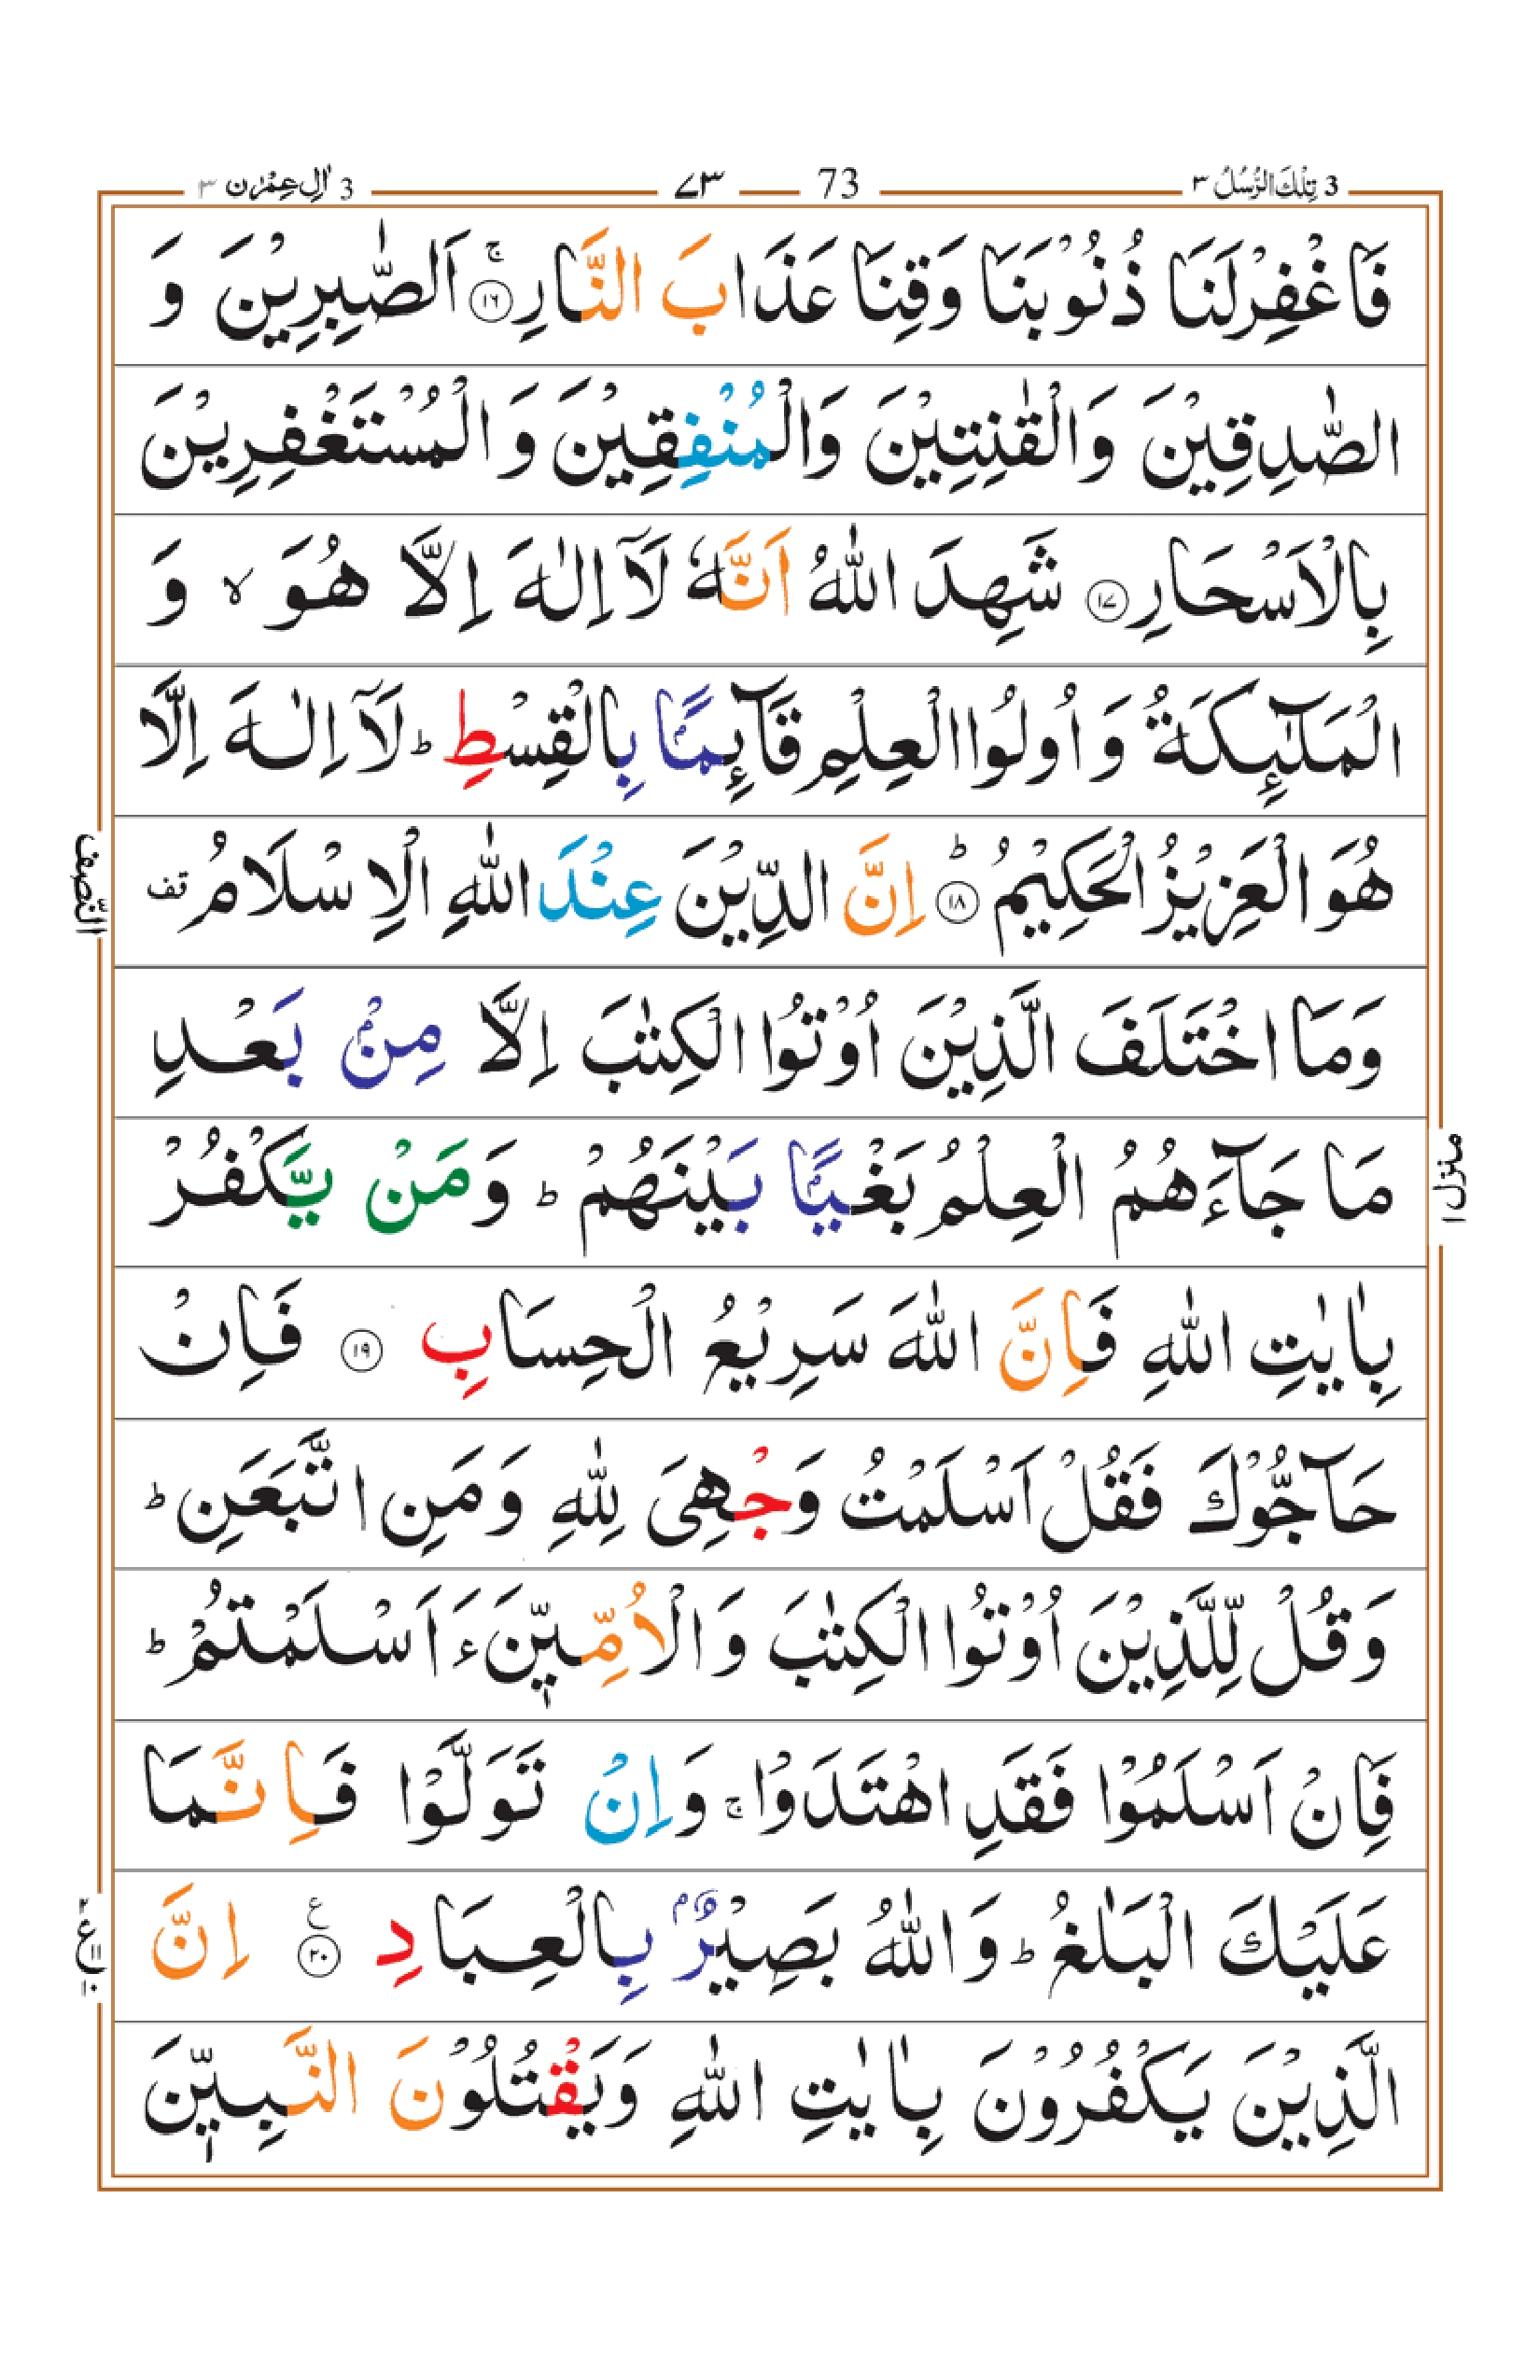 3 تِلْكَ الرُّسُلُ ٣ 73 ٧٣ 3 اٰلِ عِمْرٰن ٣
فَاغْفِرْلَنَا ذُنُوْبَنَا وَقِنَا عَذَابَ النَّارِ ۚ‏﴿۱۶﴾ اَلصّٰبِرِيْنَ وَ
الصّٰدِقِيْنَ وَالْقٰنِتِيْنَ وَالْمُنْفِقِيْنَ وَ الْمُسْتَغْفِرِيْنَ
بِالْاَسْحَارِ ﴿۱۷﴾ شَهِدَ اللّٰهُ اَنَّهٗ لَاۤ اِلٰهَ اِلَّا هُوَ ۙ وَ
الْمَلٰٓئِكَةُ وَ اُولُوا الْعِلْمِ قَآئِمًۢا بِالْقِسْطِ ؕ لَاۤ اِلٰهَ اِلَّا
هُوَ الْعَزِيْزُ الْحَكِيْمُ ؕ ﴿۱۸﴾ اِنَّ الدِّيْنَ عِنْدَ اللّٰهِ الْاِسْلَامُ قف
النّصف
وَمَا اخْتَلَفَ الَّذِيْنَ اُوْتُوا الْكِتٰبَ اِلَّا مِنْۢ بَعْدِ
مَا جَآءَهُمُ الْعِلْمُ بَغْيًۢا بَيْنَهُمْ ؕ وَمَنْ يَّكْفُرْ
منزل ۱
بِاٰيٰتِ اللّٰهِ فَاِنَّ اللّٰهَ سَرِيْعُ الْحِسَابِ ﴿۱۹﴾ فَاِنْ
حَآجُّوْكَ فَقُلْ اَسْلَمْتُ وَجْهِىَ لِلّٰهِ وَمَنِ اتَّبَعَنِ ؕ
وَقُلْ لِّلَّذِيْنَ اُوْتُوا الْكِتٰبَ وَالْاُمِّيّٖنَ ءَاَسْلَمْتُمْ ؕ
فَاِنْ اَسْلَمُوْا فَقَدِ اهْتَدَوْا ۚ وَاِنْ تَوَلَّوْا فَاِنَّمَا
عَلَيْكَ الْبَلٰغُ ؕ وَاللّٰهُ بَصِيْرٌۢ بِالْعِبَادِ ع ﴿۲۰﴾ اِنَّ
الَّذِيْنَ يَكْفُرُوْنَ بِاٰيٰتِ اللّٰهِ وَيَقْتُلُوْنَ النَّبِيّٖنَ